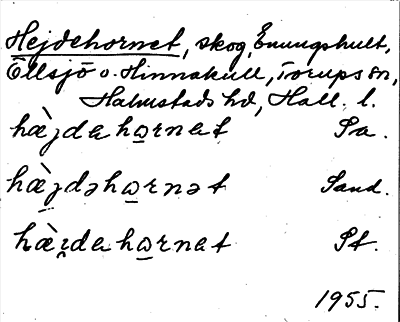 Hejdehornet, skog, Enungshult,
Ellsjö o. Hinnakull, Torups sn,
Halmstads hd, Hall. l.
hæ̀jdahɷrnat Sa.
hæ̀jdəhɷrnət Sand.
hæ̀i̯dahɷrnat St.
1955.